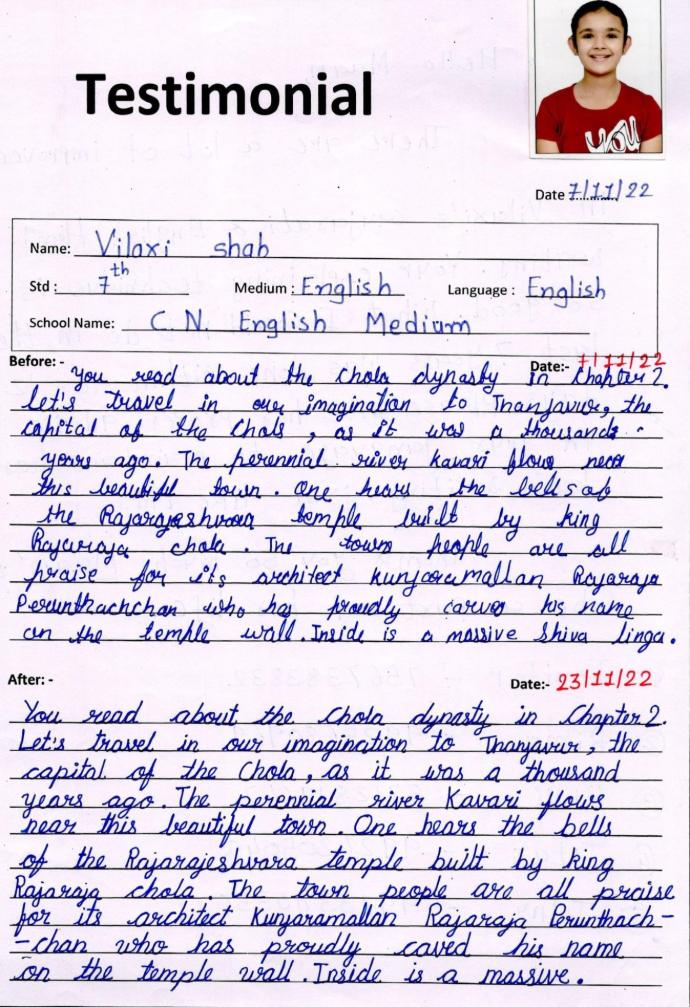 Testimonial
YOU
Date 7/11/22
Name: Vilaxi shah
Std : 7th Medium : English Language : English
School Name: C. N. English Medium
Before: - Date:- 7/11/22
You read about the Chola dynasty in Chapter 2.
Let's travel in our imagination to Thanjavur, the
capital of the Chola , as it was a thousands
years ago. The perennial river Kavari flows near
this beautiful town. One hears the bells of
the Rajarajeshvara temple built by king
Rajaraja chola. The town people are all
praise for its architect Kunjaramallan Rajaraja
Perunthachchan who has proudly carves his name
on the temple wall. Inside is a massive Shiva linga.
After: - Date:- 23/11/22
You read about the Chola dynasty in Chapter 2.
Let's travel in our imagination to Thanjavur, the
capital of the Chola, as it was a thousand
years ago. The perennial river Kavari flows
near this beautiful town. One hears the bells
of the Rajarajeshvara temple built by king
Rajaraja chola. The town people are all praise
for its architect Kunjaramallan Rajaraja Perunthach-
-chan who has proudly caved his name
on the temple wall. Inside is a massive.